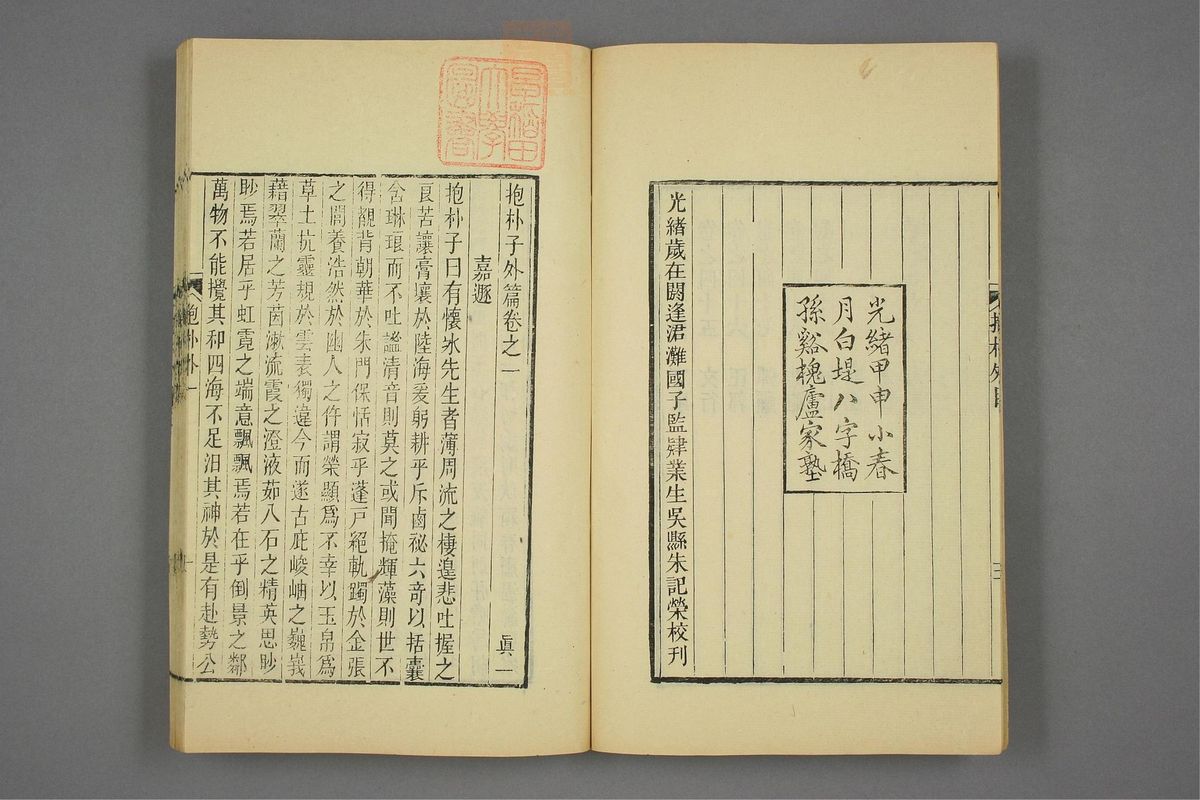 光緒甲申小春
月白堤八字橋
孫谿槐廬家塾
光緒歲在閼逢涒灘國子監肄業生吳縣朱記榮校刊
早稻田
大學
圖書
抱朴子外篇卷之一 眞一
嘉遯
抱朴子曰有懷冰先生者薄周流之棲遑悲吐握之
良苦讓膏壤於陸海爰躬耕乎斥鹵祕六奇以括囊
含琳琅而不吐謐清音則莫之或聞掩輝藻則世不
得覩背朝華於朱門保恬寂乎蓬戸絕軌躅於金張
之閭養浩然於幽人之仵謂榮顯爲不幸以玉帛爲
草土抗靈規於雲表獨違今而遂古庇峻岫之巍峩
藉翠蘭之芳茵漱流霞之澄液茹八石之精英思眇
眇焉若居乎虹霓之端意飄飄焉若在乎倒景之鄰
萬物不能攪其和四海不足汩其神於是有赴勢公
抱朴外一